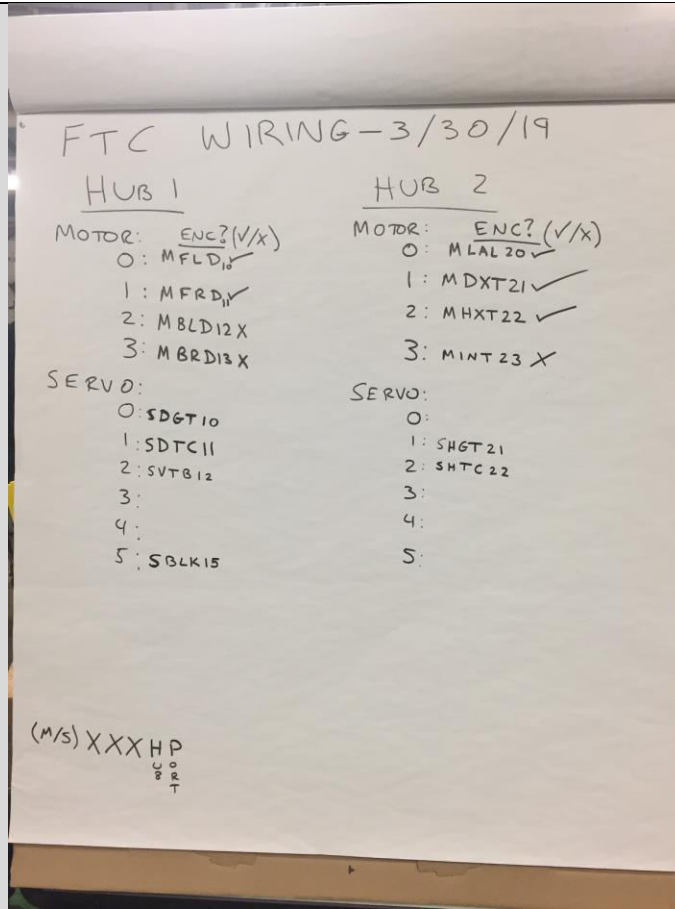 FTC WIRING-3/30/19
HUB 1
MOTOR: ENC? (√/X)
0: MFLD10✓
1: MFRD11✓
2: MBLD12X
3: MBRD13X
SERVO:
0: SDGT10
1: SDTC11
2: SVTB12
3:
4:
5: SBLK15
HUB 2
MOTOR: ENC? (√/X)
0: MLAL20✓
1: MDXT21✓
2: MHXT22✓
3: MINT23 X
SERVO:
0:
1: SHGT21
2: SHTC22
3:
4:
5:
(M/S)XXXHP
UB
ORT